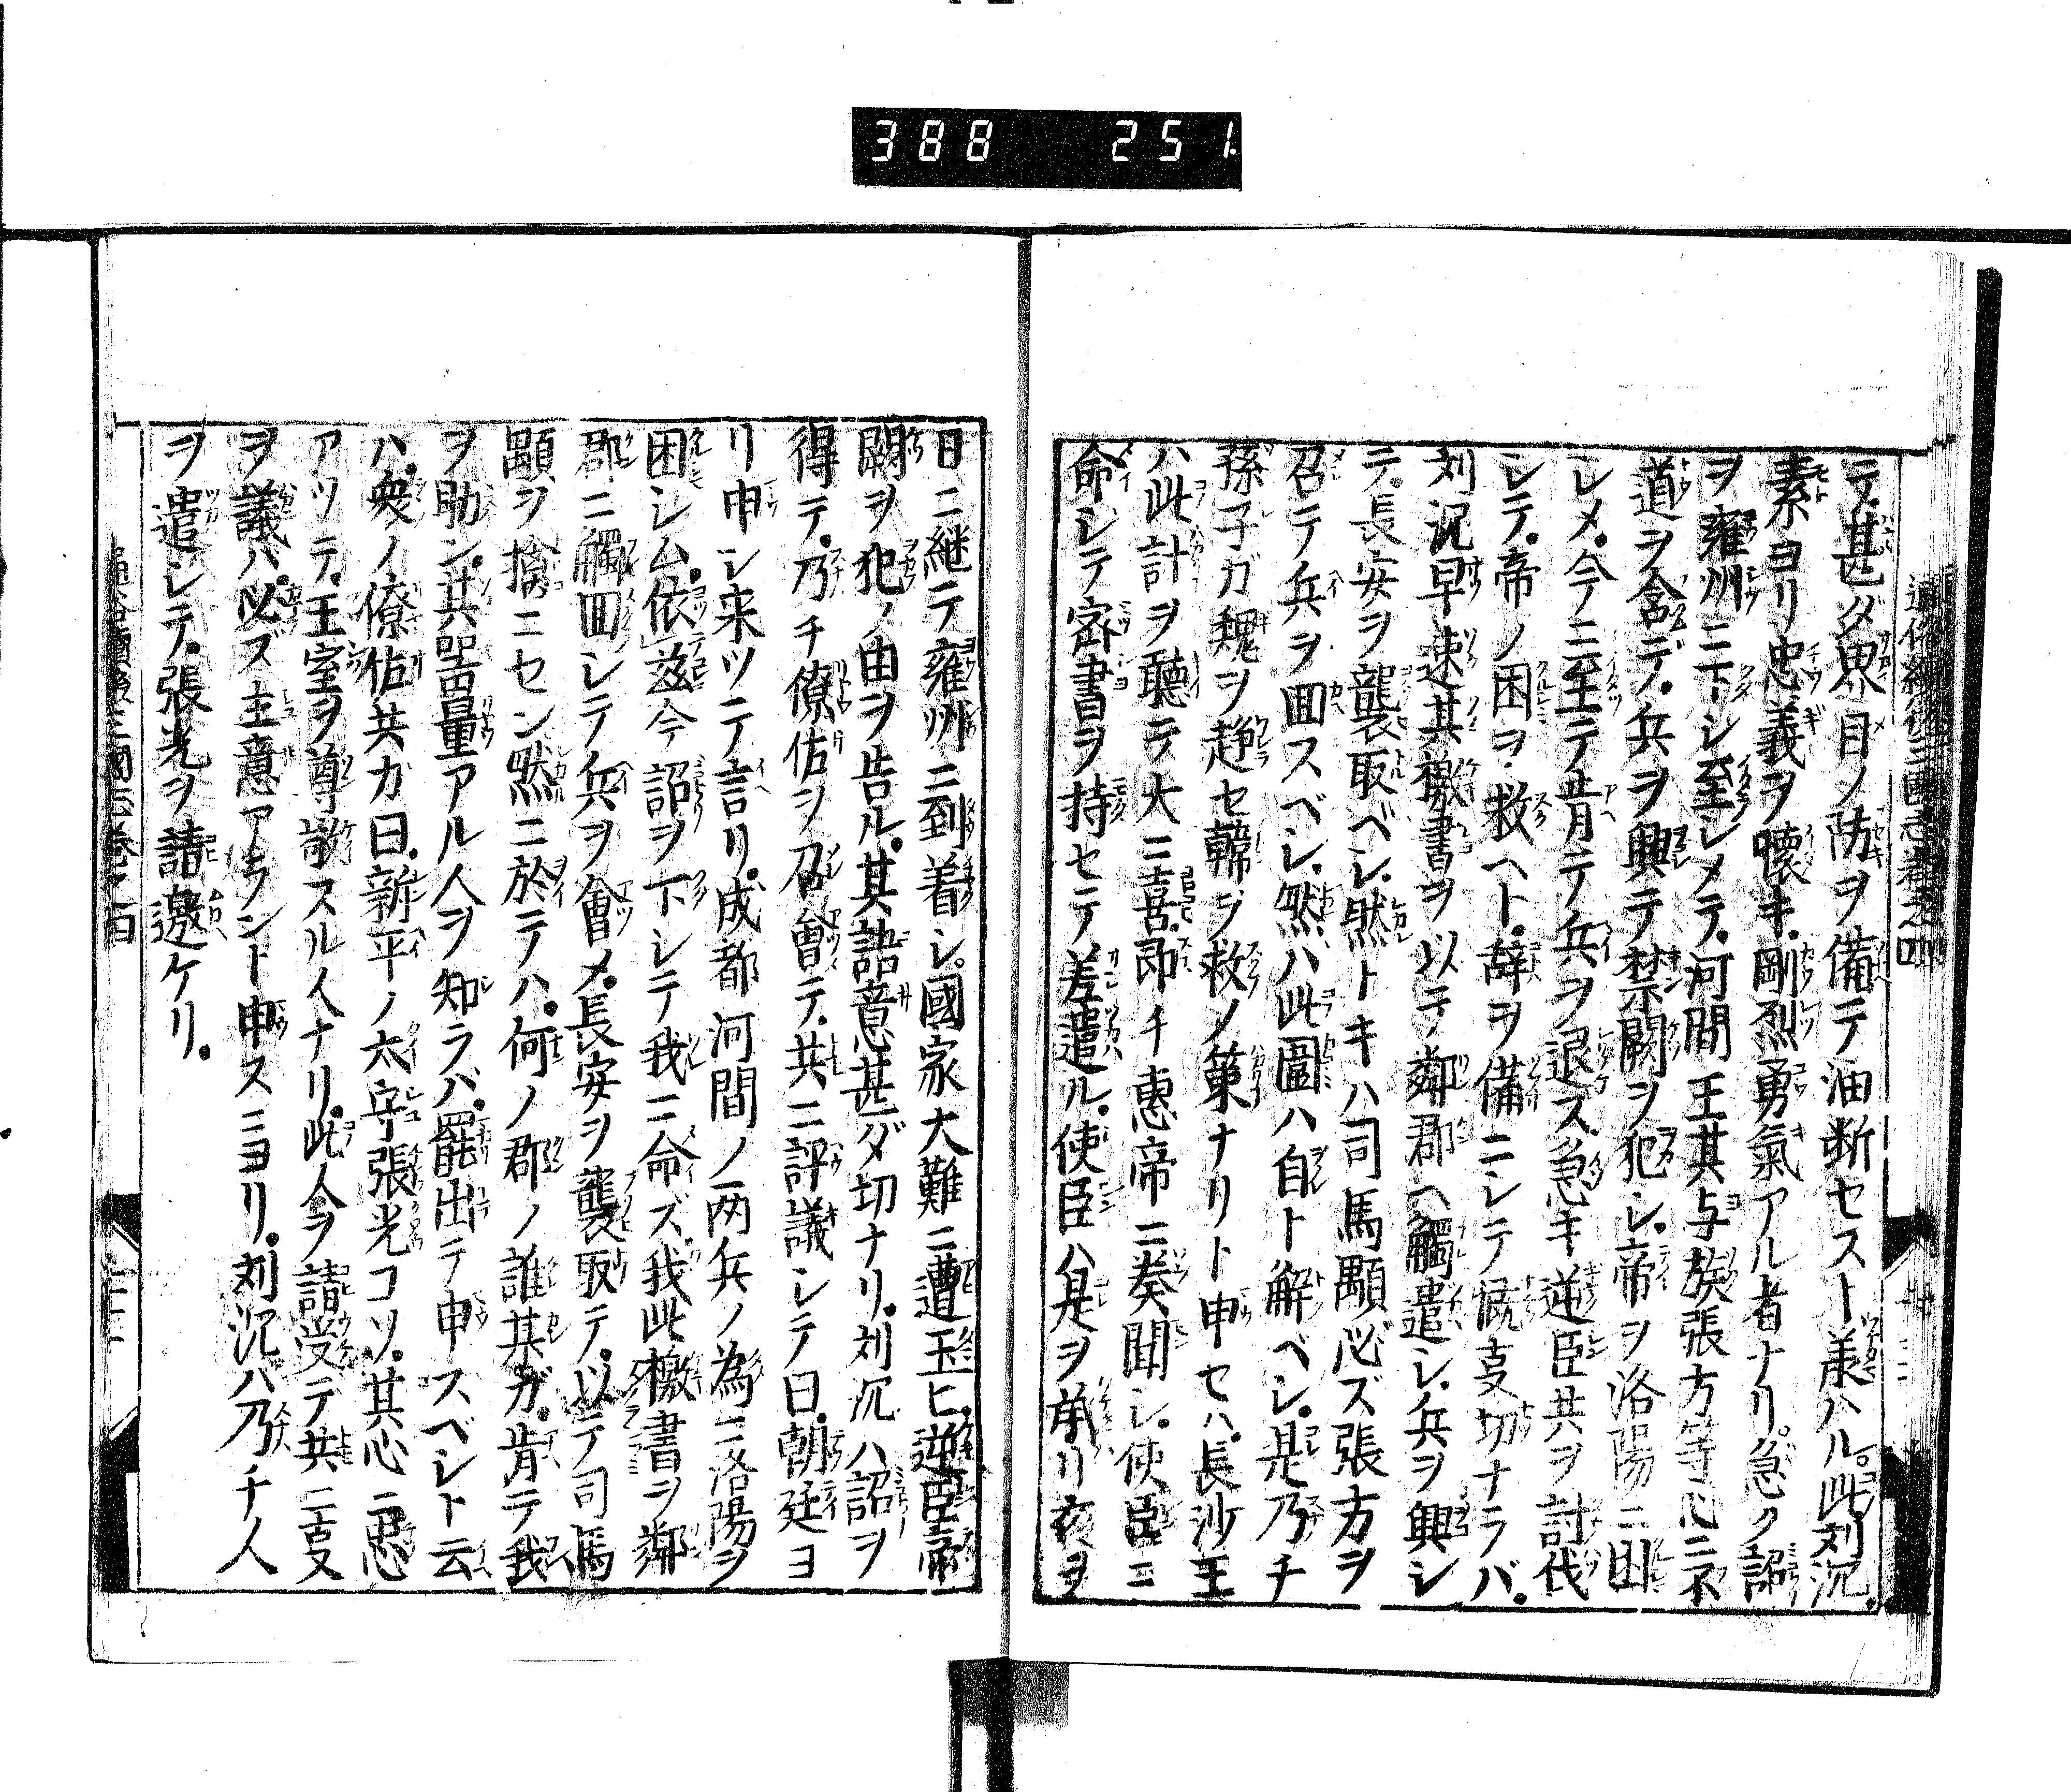 388 251
テ。甚ダ界目ノ防ヲ備テ油断セスト羕ハル。此刘沉。
素ヨリ忠義ヲ懐キ。剛烈勇氣アル者ナリ。急ク詔
ヲ雍州ニ下シ至シメテ。河間王其与族張方等心ニ不
道ヲ含デ。兵ヲ興テ禁闕ヲ犯シ。帝ヲ洛陽ニ困
シメ。今ニ至テ肯テ兵ヲ退ス。急キ逆臣共ヲ討伐
シテ。帝ノ困ヲ救ヘト。辞ヲ備ニシテ慨㕝切ナラバ。
刘沉早速其檄書ヲ以テ。鄰郡ヘ觸遣シ。兵ヲ興シ
テ。長安ヲ襲取ベシ。然トキハ司馬顒必ズ張方ヲ
召テ兵ヲ回スベシ。然ハ此圍ハ自ト解ベシ。是乃チ
孫子ガ魏ヲ趍セ韓ヲ救ノ策ナリト申セハ。長沙王
ハ此計ヲ聽テ大ニ喜。即チ惠帝ニ奏聞シ。使臣ニ
命シテ密書ヲ持セテ差遣ル。使臣ハ是ヲ羕リ夜ヲ
日ニ継テ雍州ニ到着シ。國家大難ニ遭玉ヒ。逆臣帝
闕ヲ犯ノ由ヲ告ル。其語意甚ダ切ナリ。刘沉ハ詔ヲ
得テ。乃チ僚佐ヲ召會テ。共ニ評議シテ曰。朝廷ヨ
リ申シ来ツテ言リ。成都河間ノ兩兵ノ為ニ洛陽ヲ
困シム。依兹今詔ヲ下シテ我ニ命ズ。我此檄書ヲ鄰
郡ニ觸回シテ兵ヲ會メ。長安ヲ襲取テ。以テ司馬
顒ヲ擒ニセン。然ニ於テハ。何ノ郡ノ誰某ガ。肯テ我
ヲ助ン。其噐量アル人ヲ知ラバ。罷出テ申スベシト云
ハ。衆ノ僚佐共ガ曰。新平ノ太守張光コソ。其心ニ忠
アツテ。王室ヲ尊敬スル人ナリ。此人ヲ請受テ共ニ㕝
ヲ議ハ。必ズ主意アラント申スニヨリ。刘沉ハ乃チ人
ヲ遣シテ。張光ヲ請邀ケリ。